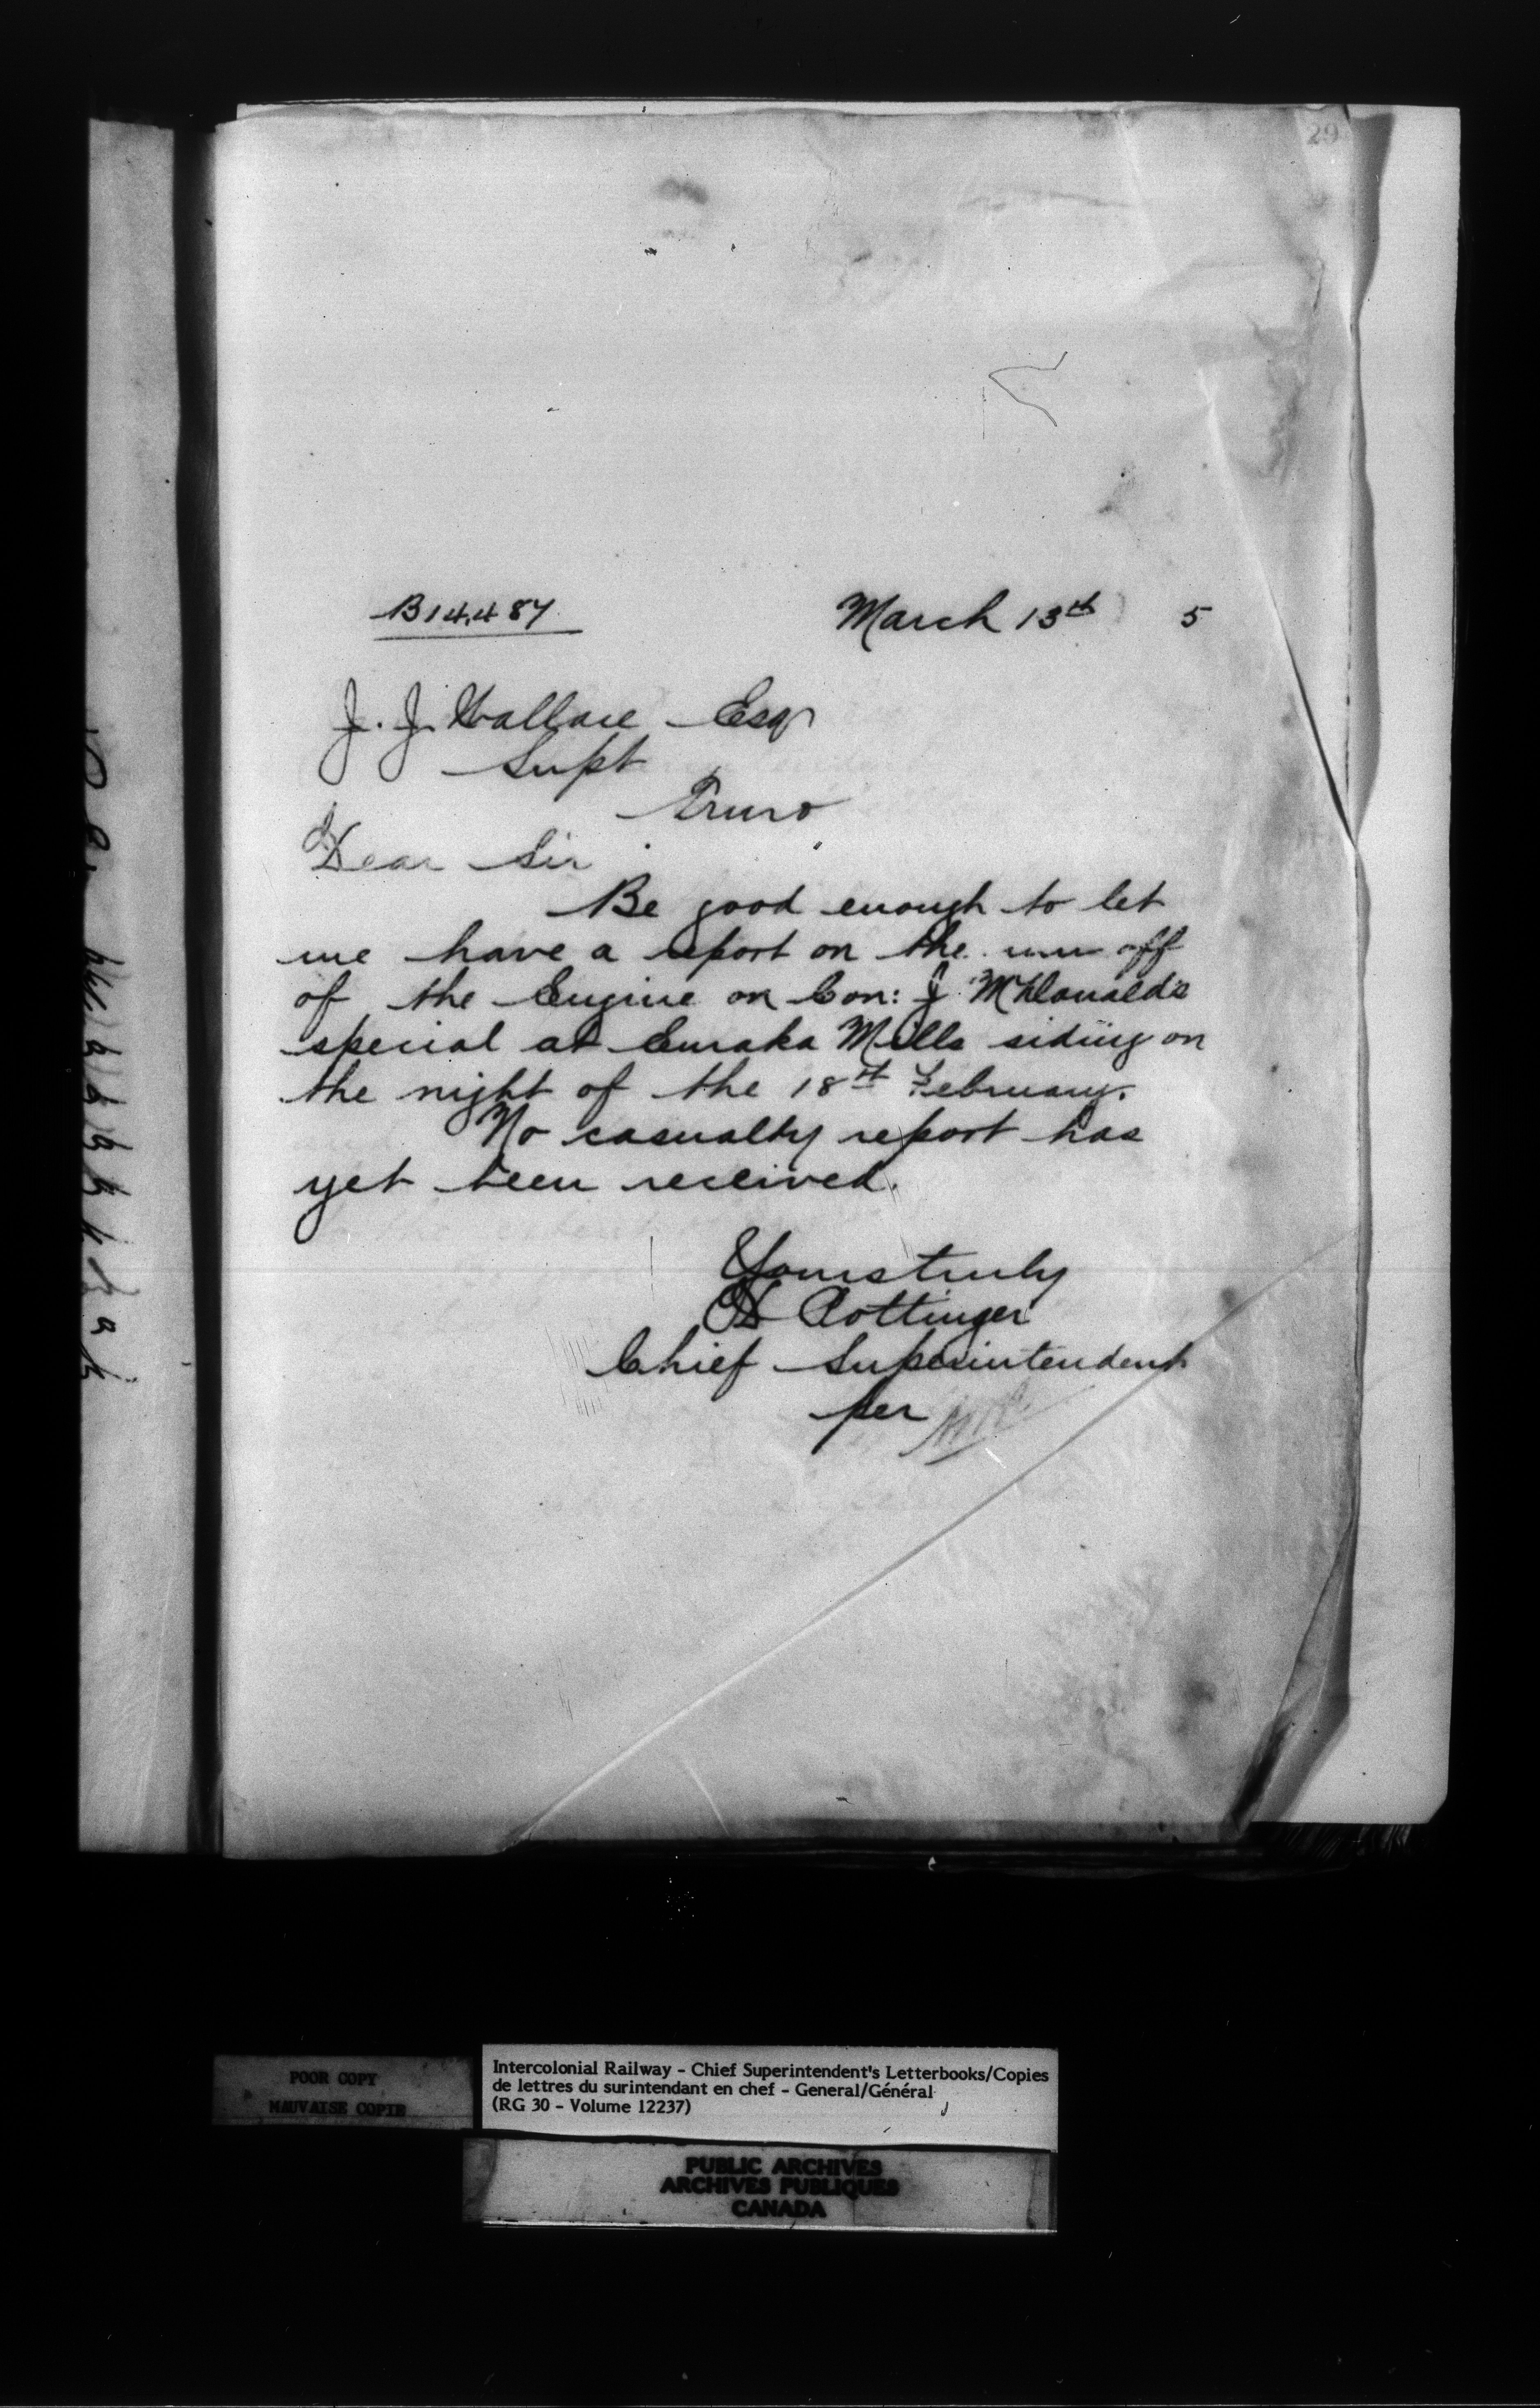 29
B14,487 March 13th 5
J. J. Wallace Esq
Supt
Truro
Dear Sir
Be good enough to let
me have a report on the run off
of the Engine on Con: J McDonald's
special at Euraka Mills siding on
the night of the 18th February.
No casualty report has
yet been received.
Yours truly
D Pottinger
Chief Superintendent
per
POOR COPY
MAUVAISE COPIE
Intercolonial Railway - Chief Superintendent's Letterbooks/Copies
de lettres du surintendant en chef - General/Général
(RG 30 - Volume 12237)
PUBLIC ARCHIVES
ARCHIVES PUBLIQUES
CANADA